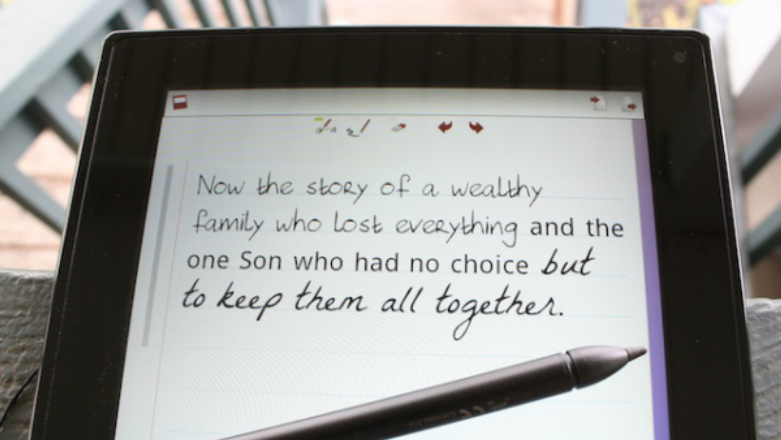 Now the story of a wealthy
family who lost everything and the
one Son who had no choice but
to keep them all together.